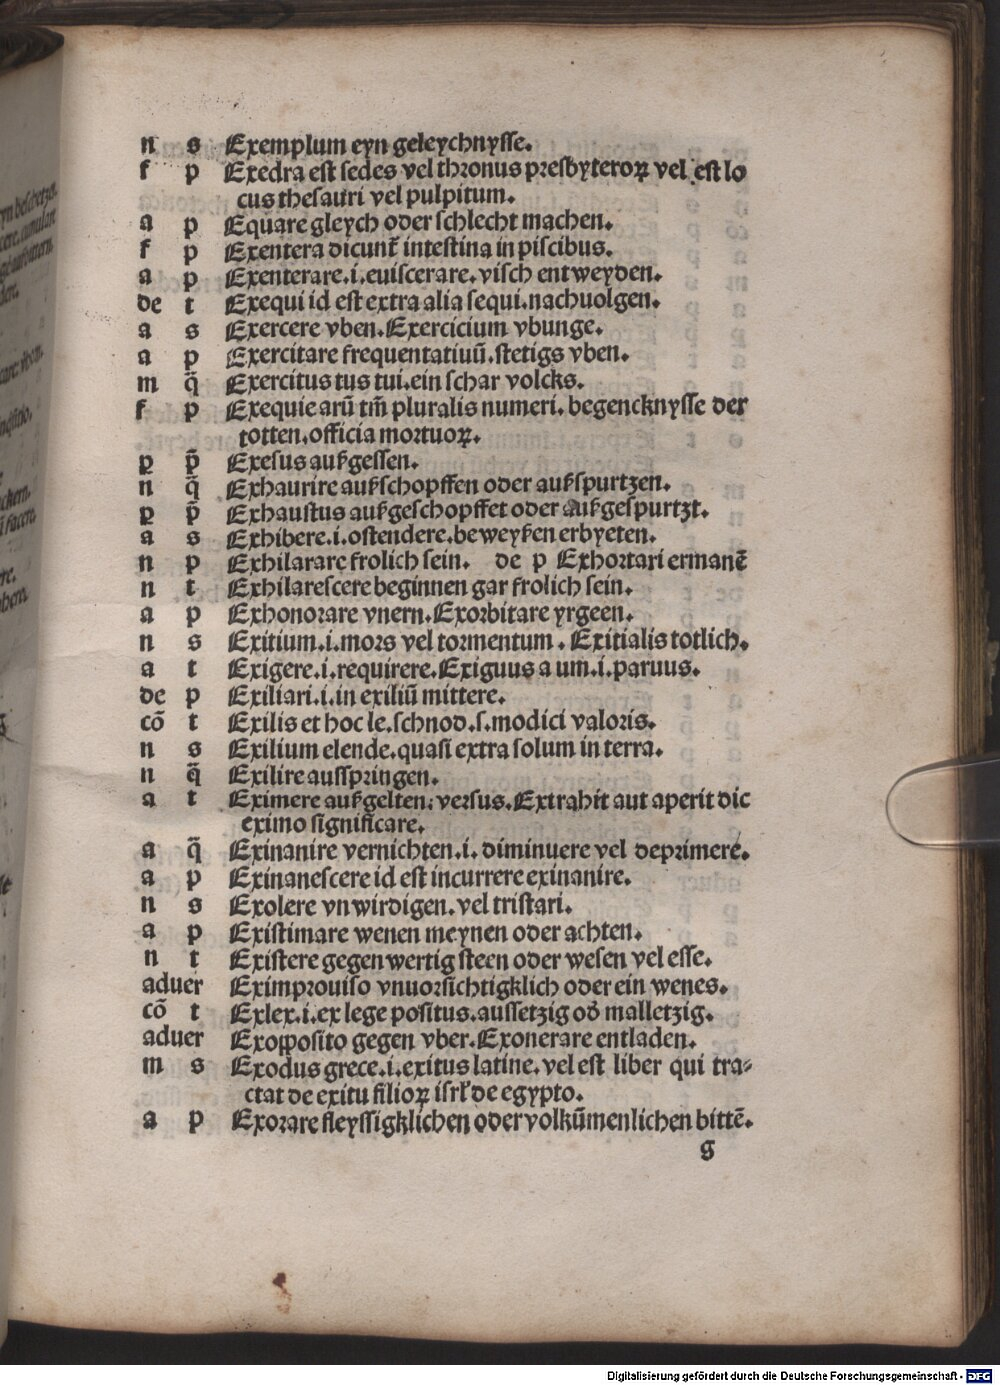 n s Exemplum eyn geleychnysse.
f p Exedra est sedes vel thronus presbyteroꝝ vel est lo
cus thesauri vel pulpitum.
a p Equare gleych oder schlecht machen.
f p Exentera dicunt̄ intestina in piscibus.
a p Exenterare.i.euiscerare.visch entweyden.
de t Exequi id est extra alia sequi.nachuolgen.
a s Exercere vben.Exercicium vbunge.
a p Exercitare frequentatiuū.stetigs vben.
m q̄ Exercitus tus tui.ein schar volcks.
f p Exequie arū tm̄ pluralis numeri.begencknysse der
totten.officia mortuoꝝ.
ꝑ p̄ Exesus außgessen.
n q̄ Exhaurire außschopffen oder außspurtzen.
ꝑ p̄ Exhaustus außgeschopffet oder außgespurtzt.
a s Exhibere.i.ostendere.beweyßen erbyeten.
n p Exhilarare frolich sein. de p Exhortari ermanē
n t Exhilarescere beginnen gar frolich sein.
a p Exhonorare vnern.Exorbitare yrgeen.
n s Exitium.i.mors vel tormentum. Exitialis totlich.
a t Exigere.i.requirere.Exiguus a um.i.paruus.
de p Exiliari.i.in exiliū mittere.
cō t Exilis et hoc le.schnod.s.modici valoris.
n s Exilium elende.quasi extra solum in terra.
n q̄ Exilire ausspringen.
a t Eximere außgelten: versus.Extrahit aut aperit dic
eximo significare.
a q̄ Exinanire vernichten.i.diminuere vel deprimere.
a p Exinanescere id est incurrere exinanire.
n s Exolere vnwirdigen.vel tristari.
a p Existimare wenen meynen oder achten.
n t Existere gegenwertig steen oder wesen vel esse.
aduer Eximprouiso vnuorsichtigklich oder ein wenes.
cō t Exlex.i.ex lege positus.aussetzig od̓ malletzig.
aduer Exopposito gegen vber.Exonerare entladen.
m s Exodus grece.i.exitus latine.vel est liber qui tra⸗
ctat de exitu filioꝝ isrl̓ de egypto.
a p Exorare fleyssigklichen oder volkūmenlichen bittē.
g
Digitalisierung gefördert durch die Deutsche Forschungsgemeinschaft - DFG